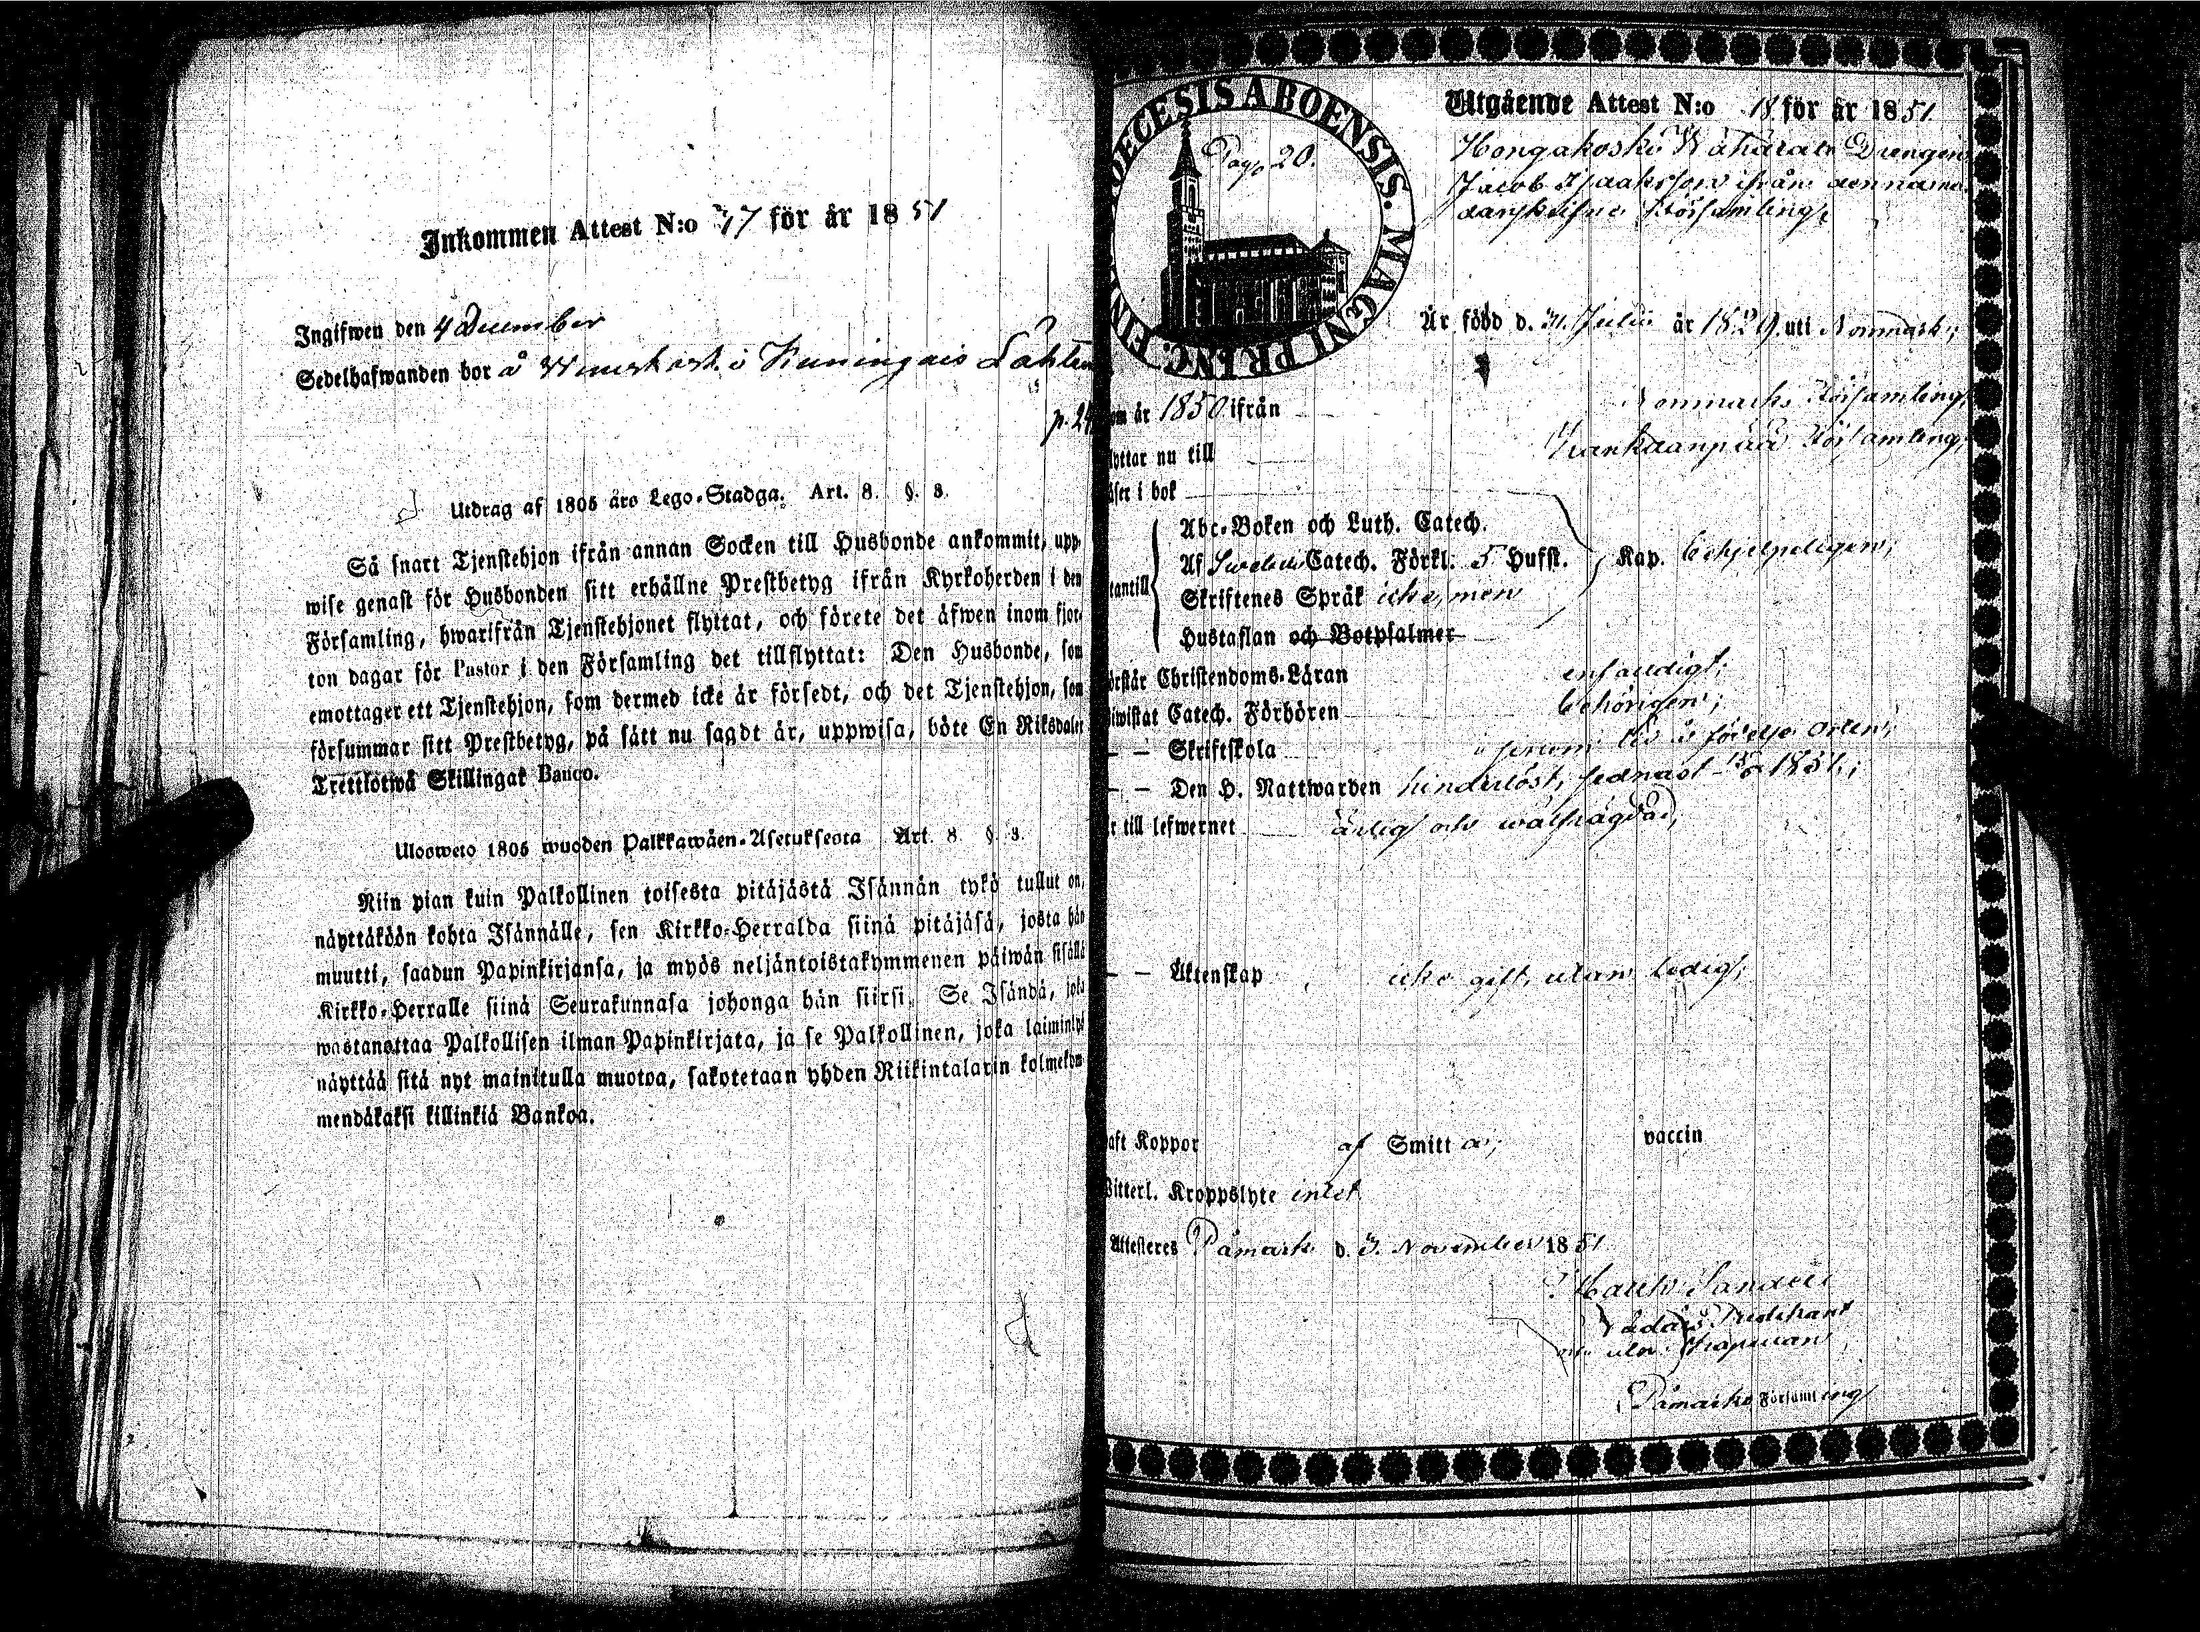 Inkommen Attest N:o 47 för år 1851
Ingifwen den 4 December
Sedelhafwanden bor å
p. 24
Utdrag af 1805 års Lego-Stadga. Art. 8. §. 3.
Så snart Tjenstehjon ifrån annan Socken till Husbonde ankommit, upp-
wise genast för Husbonden sitt erhållne Prestbetyg ifrån Kyrkoherden i den
Församling, hwarifrån Tjenstehjonet flyttat, och förete det äfwen inom fjor-
ton dagar för Pastor i den Församling det tillflyttat: Den Husbonde, som
emottager ett Tjenstehjon, som dermed icke är försedt, och det Tjenstehjon, som
försummar sitt Prestbetyg, på sätt nu sagdt är, uppwisa, böte En Riksdaler
Trettiotwå Skillingar Banco.
Ulosweto 1805 wuoden Palkkawäen-Asetuksesta Art. 8 §. 3.
Niin pian kuin Palkollinen toisesta pitäjästä Isännän tykö tullut on,
näyttäköön kohta Isännälle, sen Kirkko-Herralda siinä pitäjäsä, josta hän
muutti, saadun Papinkirjansa, ja myös neljäntoistakymmenen päiwän sisällä
Kirkko-Herralle siinä Seurakunnasa johonga hän siirsi. Se Isändä, joka
wastanottaa Palkollisen ilman Papinkirjata, ja se Palkollinen, joka laiminlyö
näyttää sitä nyt mainitulla muotoa, sakotetaan yhden Riikintalarin kolmekym-
mendäkaksi killinkiä Bankoa.
DIOECESIS ABOENSIS. MAGNI PRINC. FINL
Pag. 20.
Utgående Attest N:o 18 för år 1851
Hongakoski Drengen
Jacob Isaaksson ifrån denna
Församling,
Är född d. 31 Julii år 1829 uti Norrmark;
om år 1850 ifrån Norrmarks Församling,
flyttar nu till Kankaanpää Församling;
Läser i bok
Abc-Boken och Luth. Catech.
Af Swebelii Catech. Förkl. 5 Hufst. Kap. behjelpeligen;
utantill
Skriftenes Språk icke, men
Hustaflan och Botpsalmer
Förstår Christendoms-Läran enfaldigt;
Biwistat Catech. Förhören behörigen;
— — Skriftskola
— — Den H. Nattwarden hinderlöst, sednast 1851;
Är till lefwernet ärlig och wälfrägdad,
— — Äktenskap icke gift, utan ledig;
haft Koppor af Smitt vaccin
Witterl. Kroppslyte intet
Attesteras Påmark d. 3. November 1851
Predikant
Kapellan
Påmarks Församling